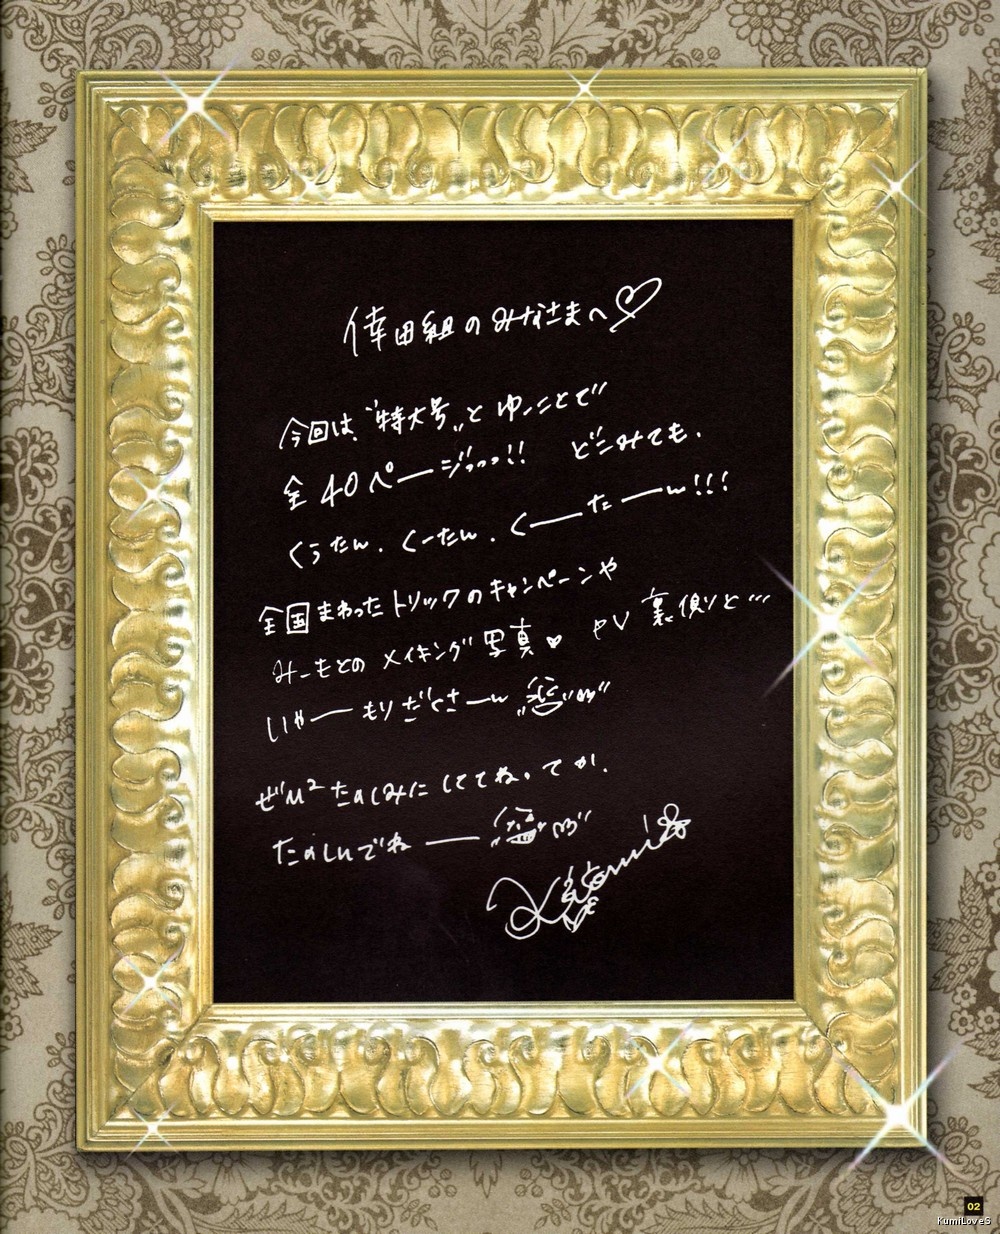 倖田組のみなさまへ♡
今回は、"特大号"とゆーことで
全40ページっっっ!! どこみても、
くぅたん、くーたん、くーたーん!!!
全国まわったトリックのキャンペーンや
みーもとのメイキング写真♥ PV裏側りと…
いやーもりだくさーん
ぜひ²たのしみにしててね。てか、
たのしんでねー
Kumi
02
KumiLoveS